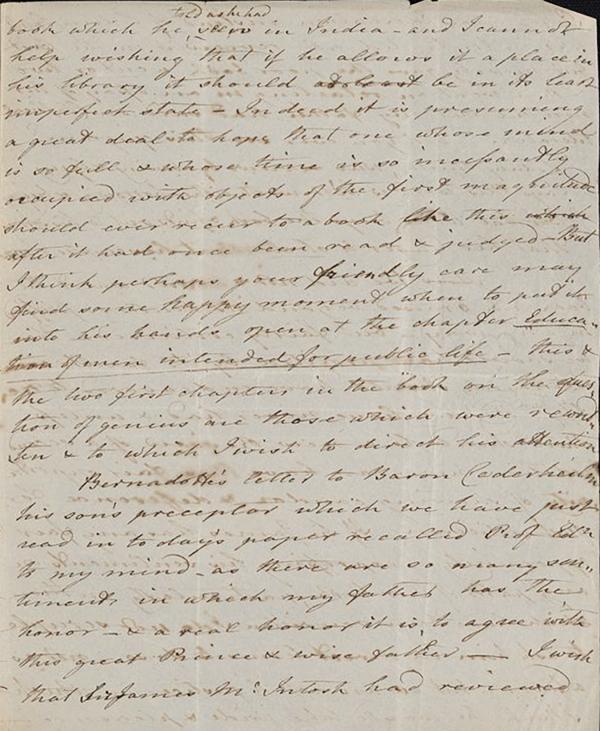 told us he had
book which he seen in India - and I cannot
help wishing that if he allows it a place in
his library it should at least be in its least
imperfect state - Indeed it is presuming
a great deal to hope that one whose mind
is so full & whose time is so incessantly
occupied with objects of the first magnitude
should ever recur to a book like this which
after it had once been read & judged - But
I think perhaps your friendly care may
find some happy moment when to put it
into his hands open at the chapter Educa-
tion of men intended for public life - this &
the two first chapters in the book on the ques-
tion of genius are those which were rewrit-
ten & to which I wish to direct his attention
Bernadotte's letter to Baron Cederheilm
his son's preceptor which we have just
read in to day's paper recalled Prof Edn
to my mind - as there are so many sen-
timents in which my father has the
honor - & a real honor it is, to agree with
this great Prince & wise father — I wish
that Sir James Mc Intosh had reviewed